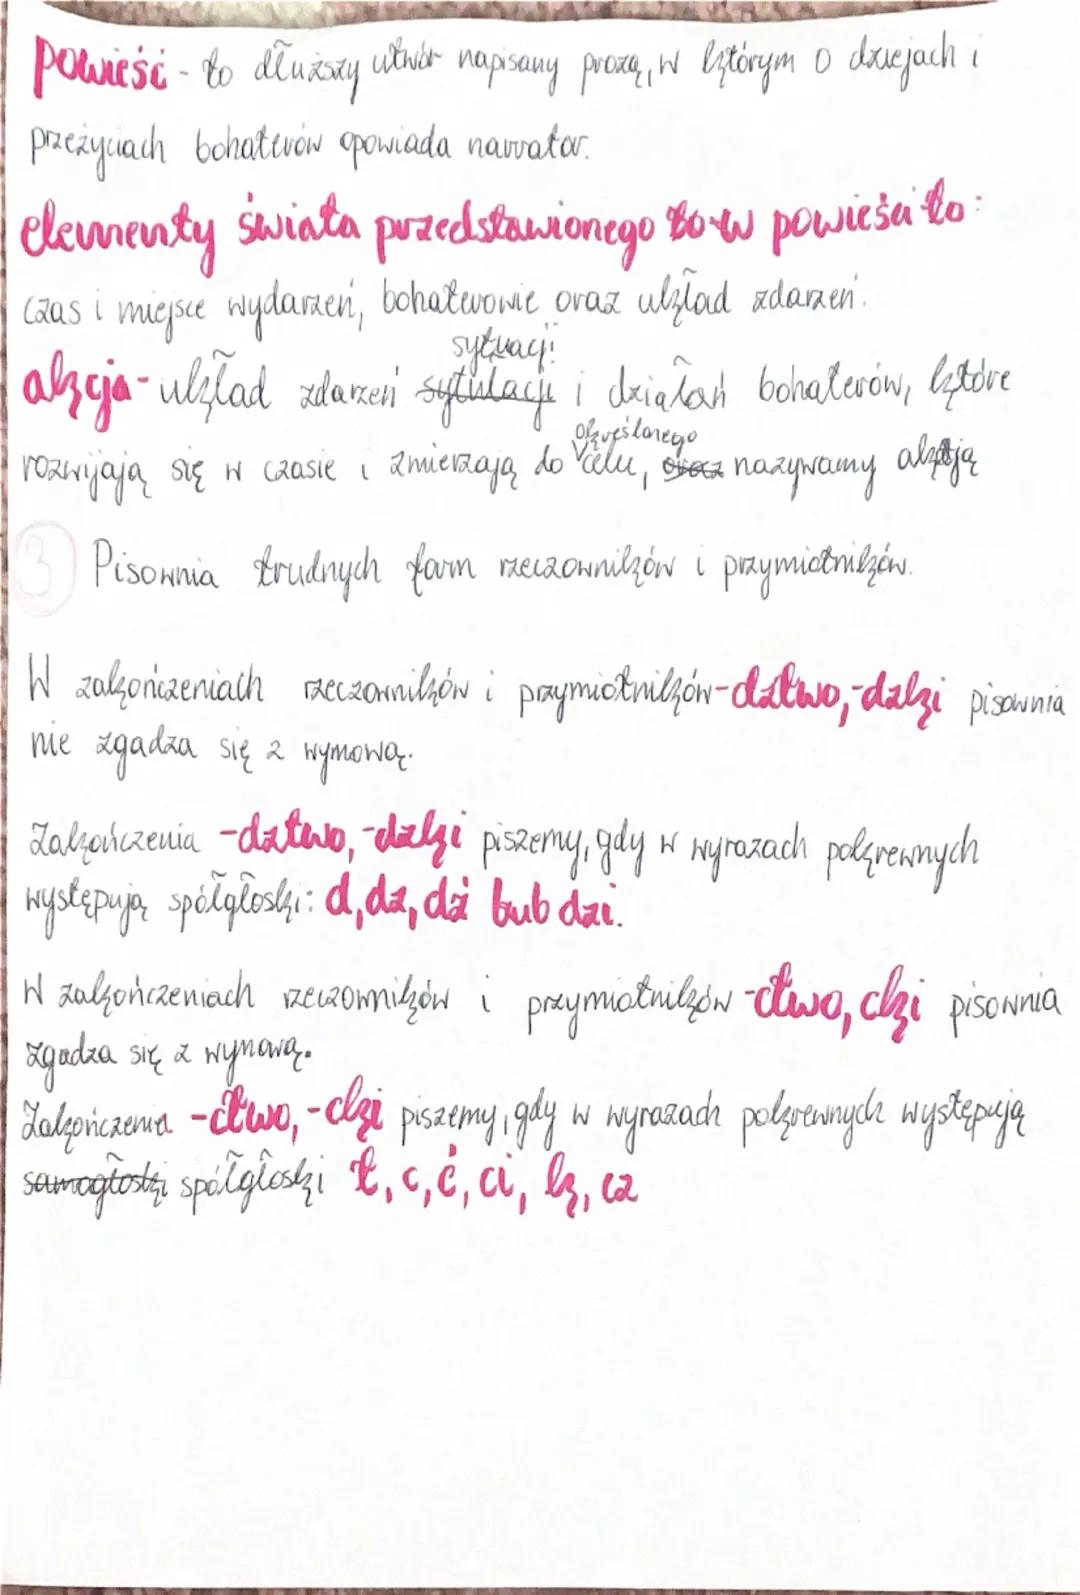 powieść - to dłuższy utwór napisany prozą, w którym o dziejach i
przeżyciach bohaterów opowiada narrator.
elementy świata przedstawionego to w powieści to:
czas i miejsce wydarzeń, bohaterowie oraz układ zdarzeń.
sytuacji
akcja - układ zdarzeń sytulacji i działań bohaterów, które
określonego
rozwijają się w czasie i zmierzają do celu, oraz nazywamy akcją
3 Pisownia trudnych form rzeczowników i przymiotników.
W zakończeniach rzeczowników i przymiotników -dztwo, -dzki pisownia
nie zgadza się z wymową.
Zakończenia -dztwo, -dzki piszemy, gdy w wyrazach pokrewnych
występują spółgłoski: d, dz, dź bub dzi.
W zakończeniach rzeczowników i przymiotników -ctwo, cki pisownia
zgadza się z wymową.
Zakończenia -ctwo, -cki piszemy, gdy w wyrazach pokrewnych występują
samogłoski spółgłoski t, c, ć, ci, k, cz